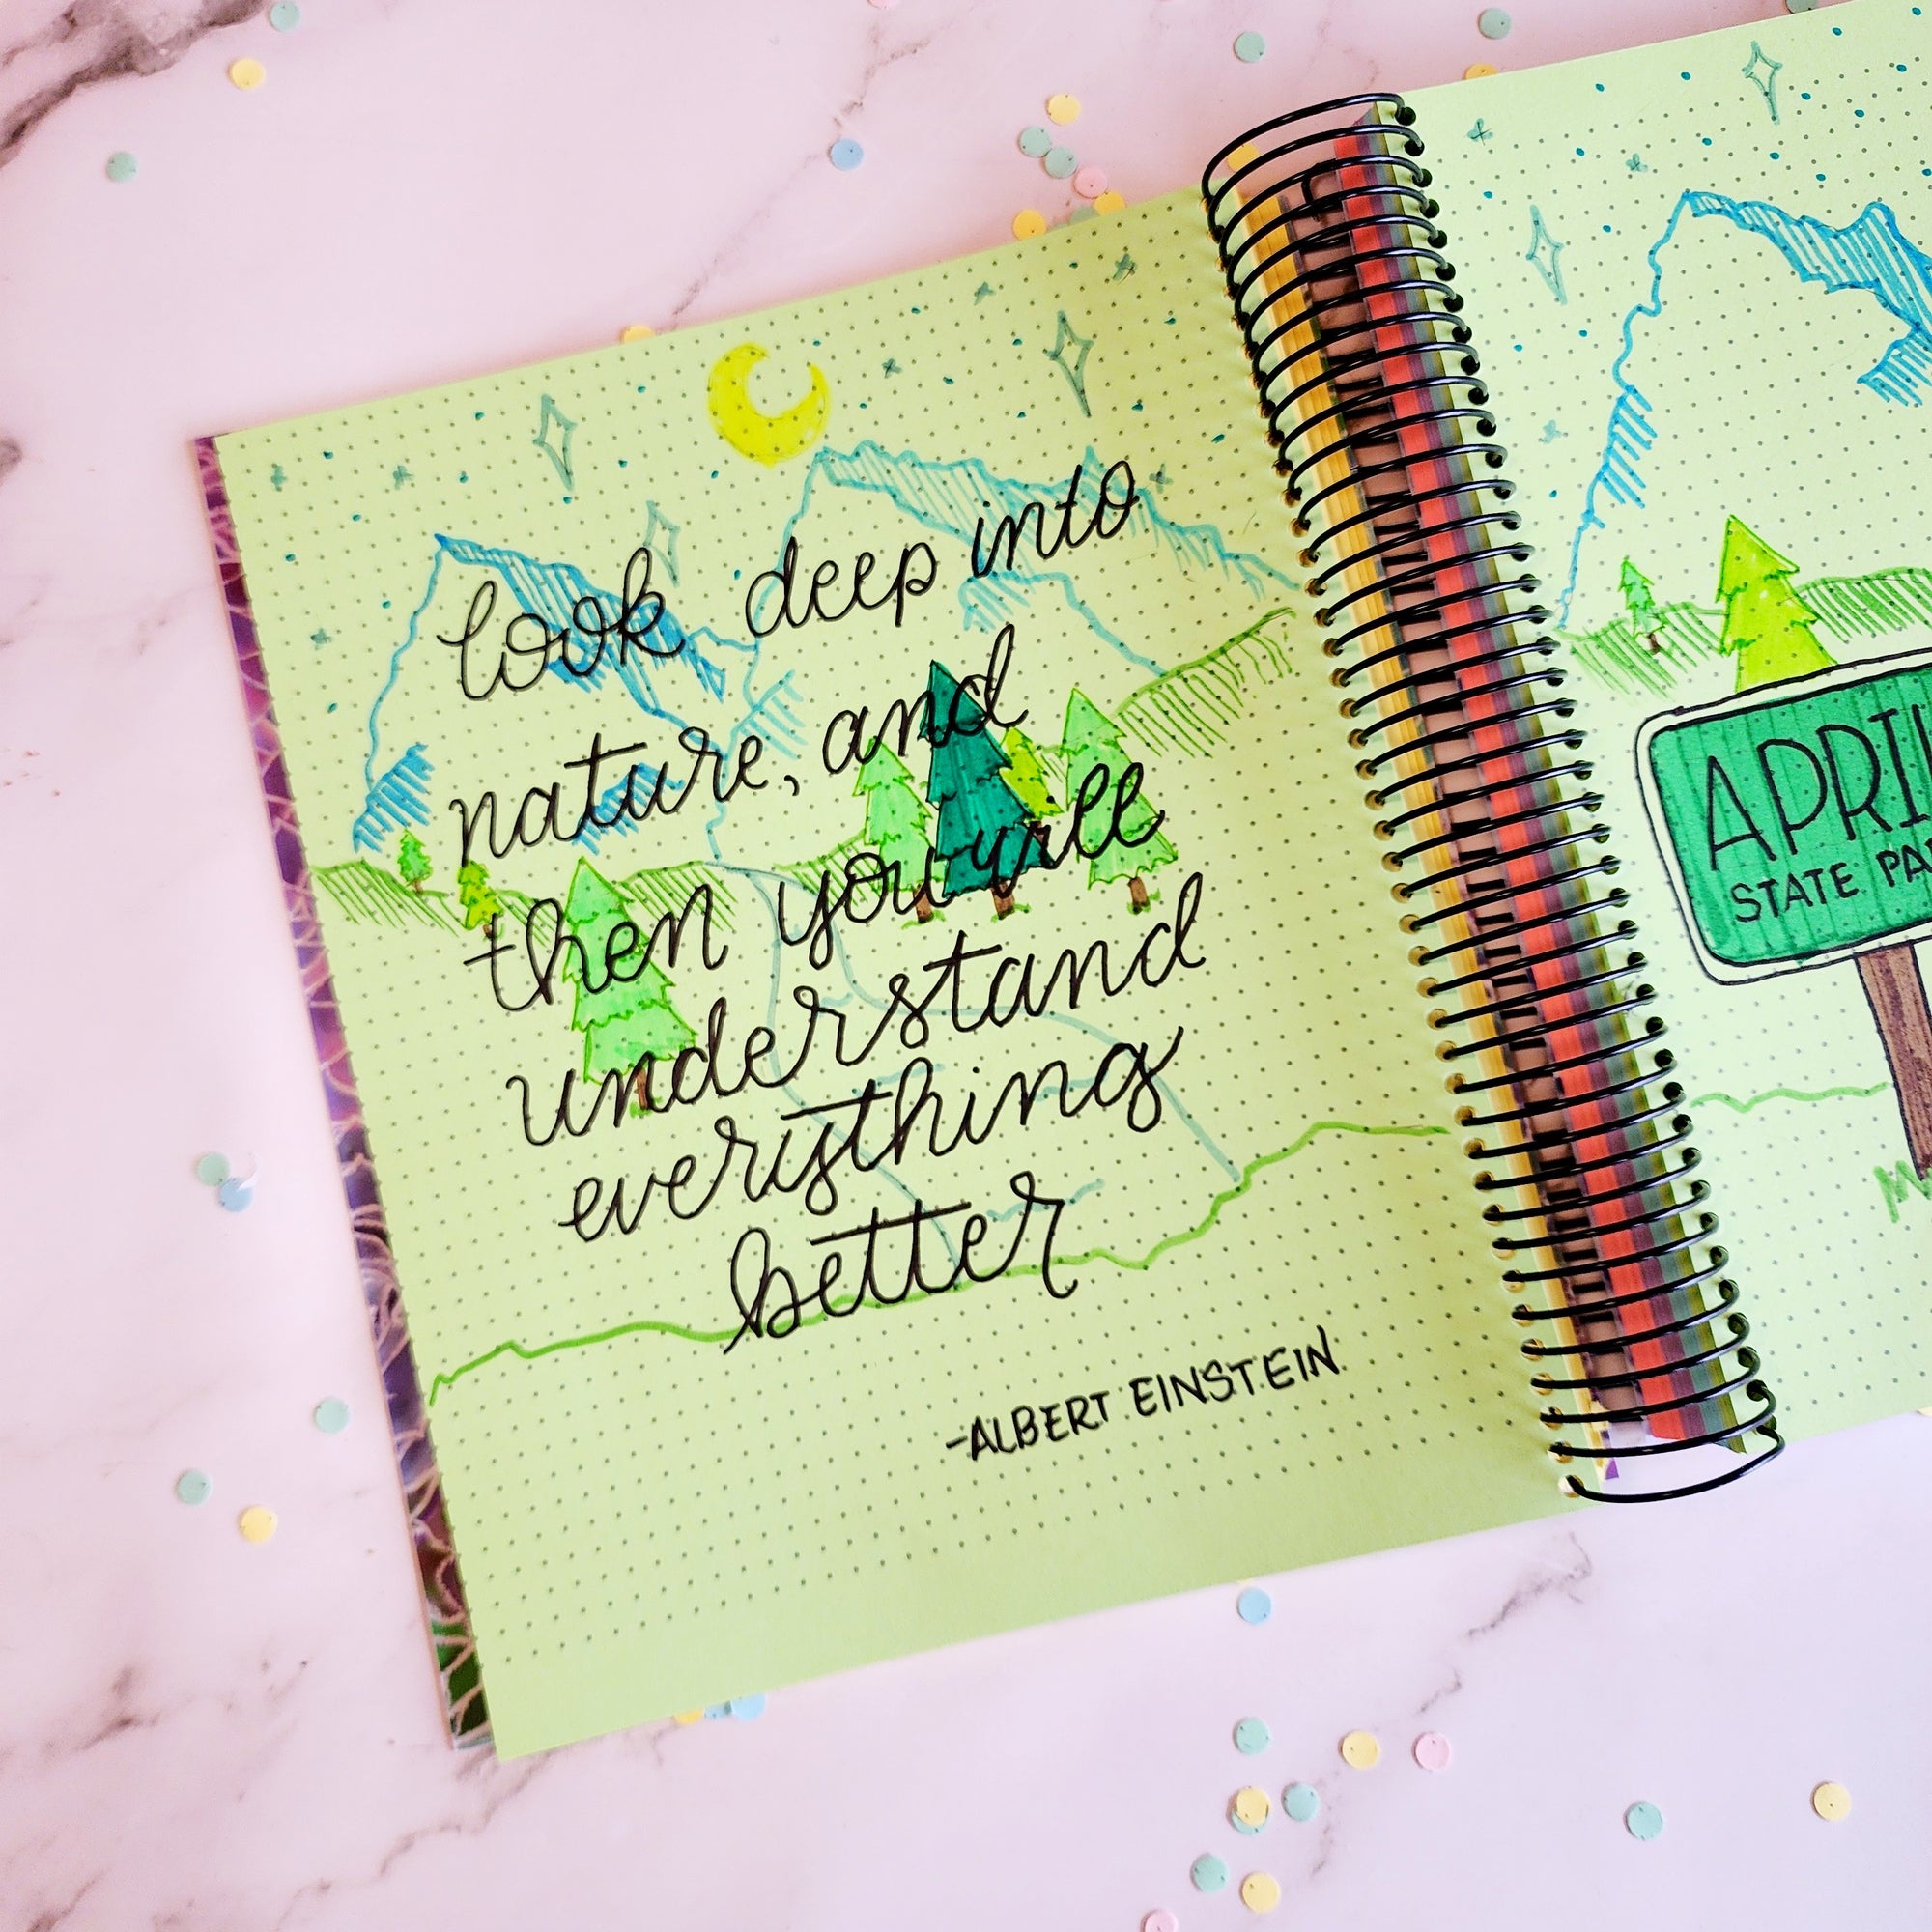 look deep into
nature, and
then you will
understand
everything
better
-ALBERT EINSTEIN
APRIL
STATE